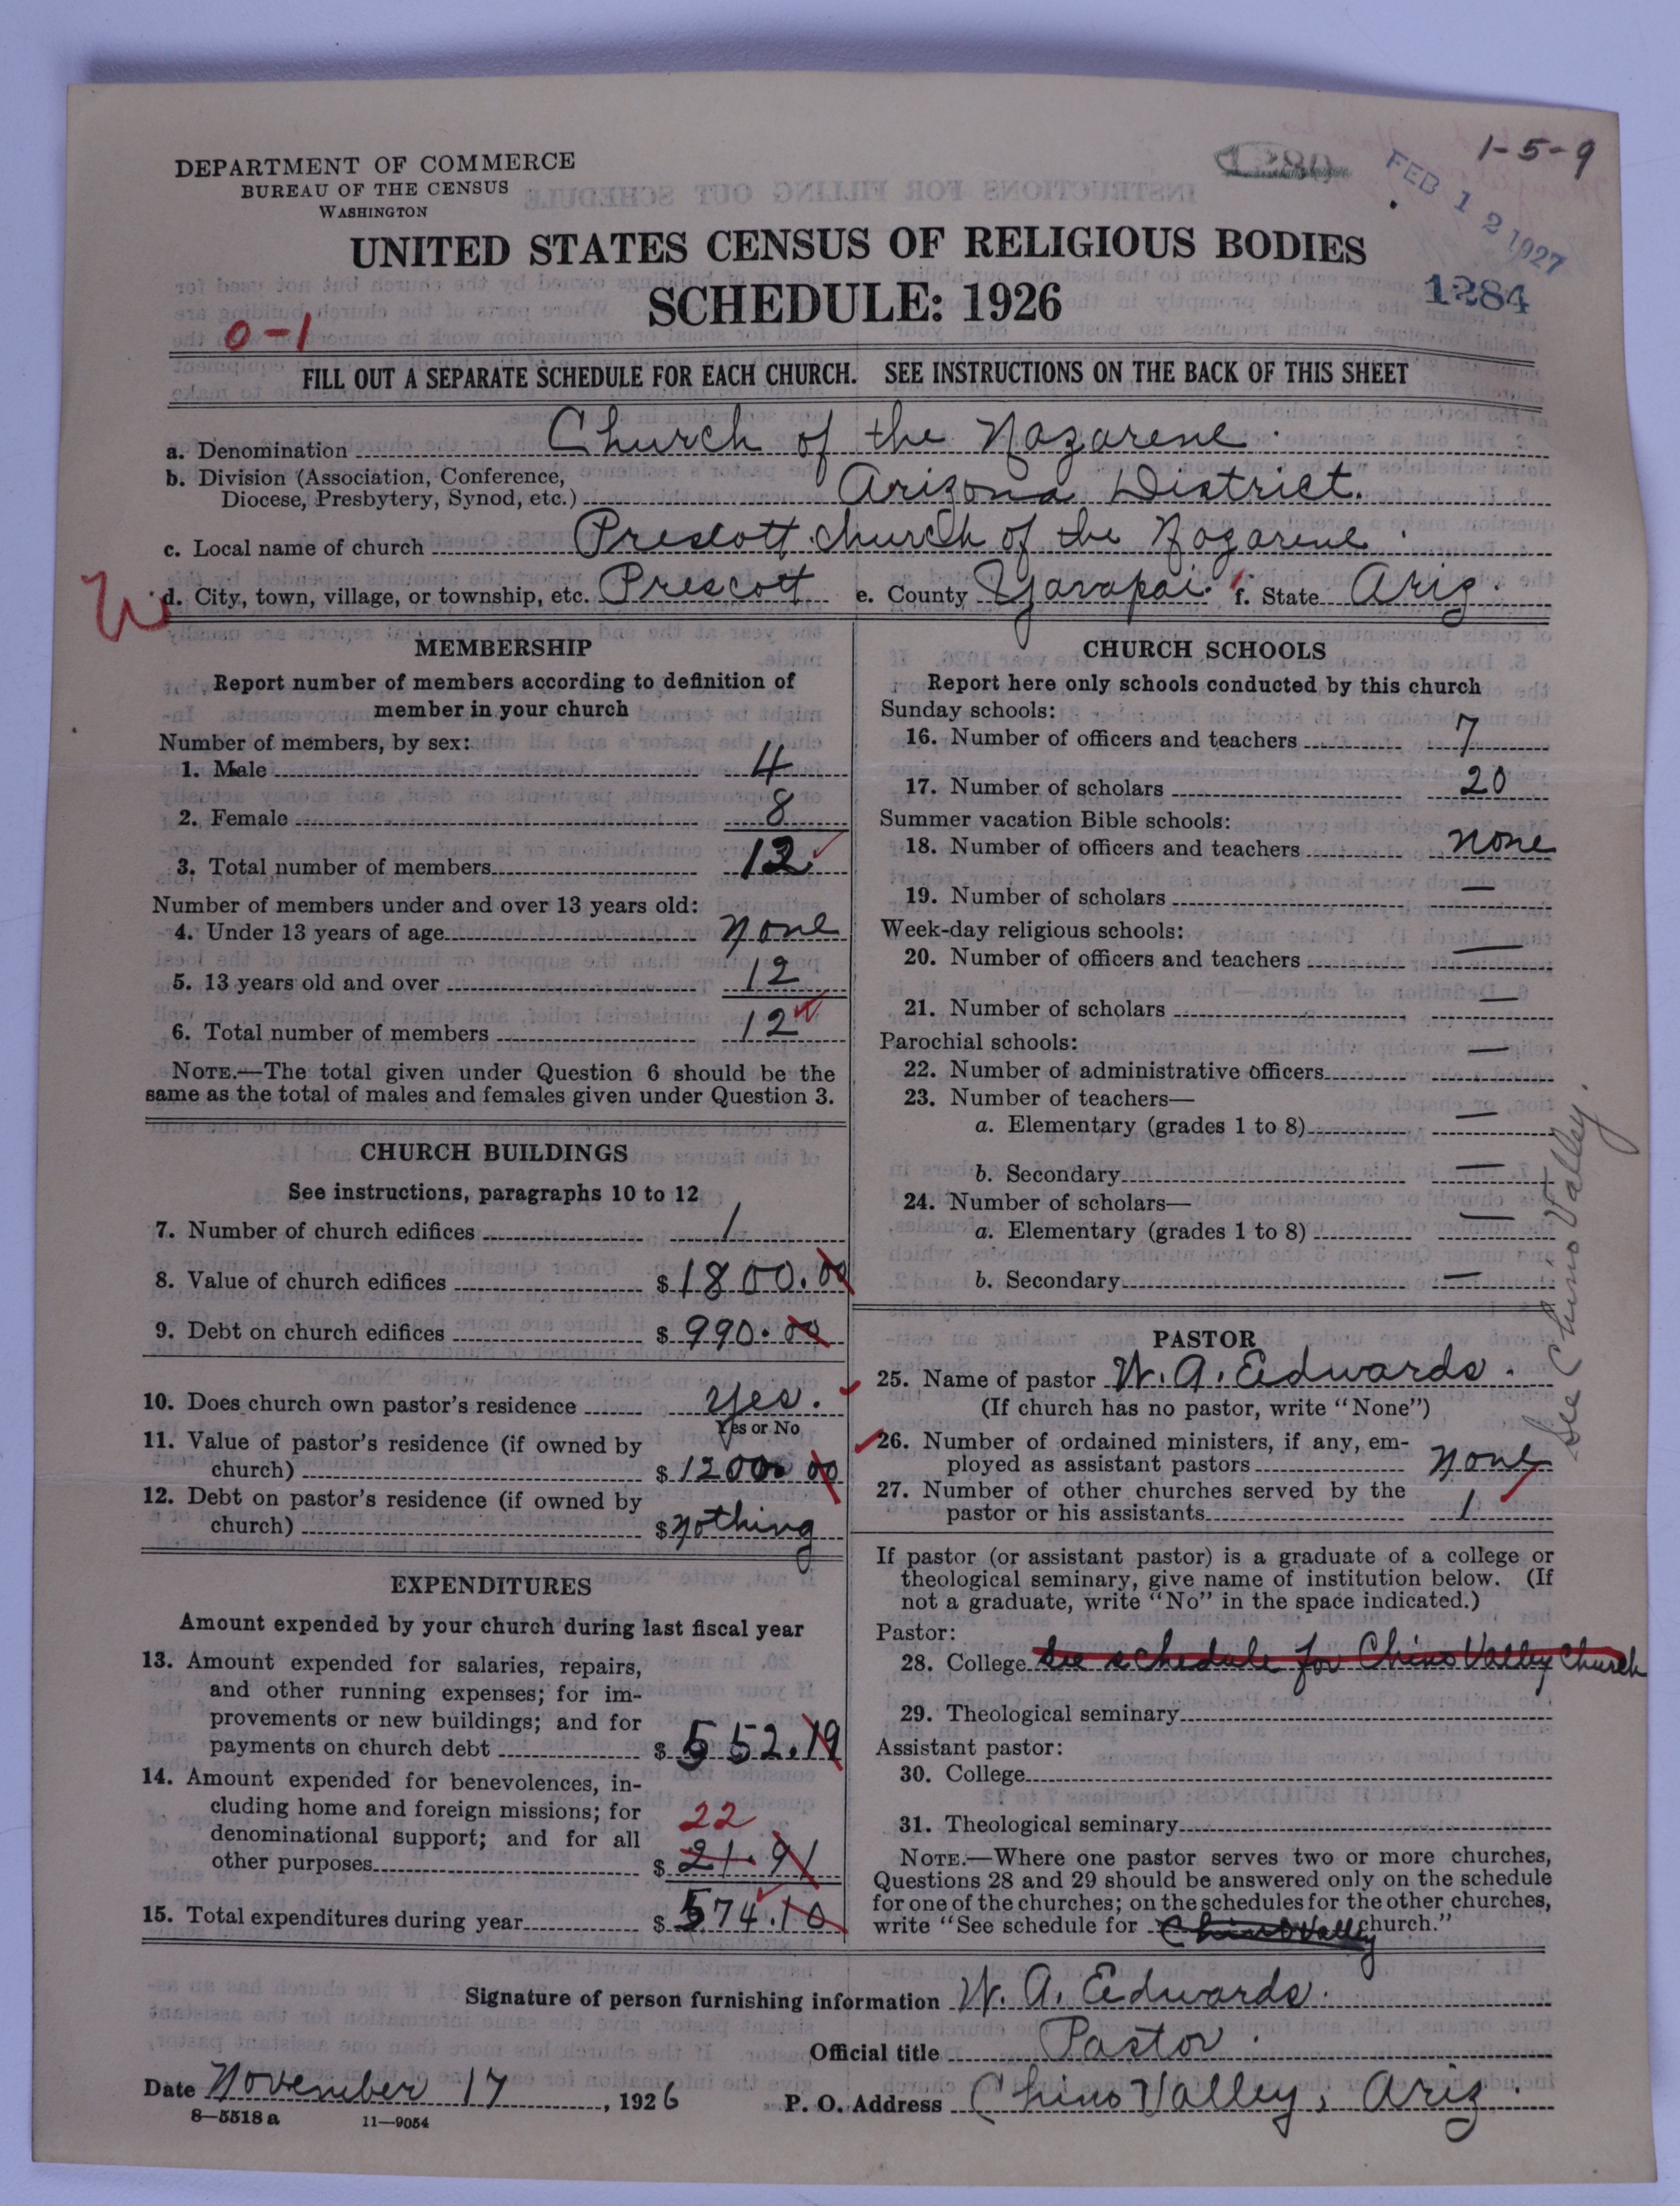 1-5-9
DEPARTMENT OF COMMERCE
BUREAU OF THE CENSUS
WASHINGTON
FEB 12 1927
UNITED STATES CENSUS OF RELIGIOUS BODIES
SCHEDULE: 1926
1284
0-1
FILL OUT A SEPARATE SCHEDULE FOR EACH CHURCH. SEE INSTRUCTIONS ON THE BACK OF THIS SHEET
a. Denomination Church of the Nazarene.
b. Division (Association, Conference,
Diocese, Presbytery, Synod, etc.) Arizona District.
c. Local name of church Prescott church of the Nazarene.
W d. City, town, village, or township, etc. Prescott e. County Yavapai. f. State Ariz.
MEMBERSHIP
Report number of members according to definition of
member in your church
Number of members, by sex:
1. Male 4
2. Female 8
3. Total number of members 12
Number of members under and over 13 years old:
4. Under 13 years of age none
5. 13 years old and over 12
6. Total number of members 12
NOTE.—The total given under Question 6 should be the
same as the total of males and females given under Question 3.
CHURCH BUILDINGS
See instructions, paragraphs 10 to 12
7. Number of church edifices 1
8. Value of church edifices $ 1800.00
9. Debt on church edifices $ 990.00
10. Does church own pastor's residence yes.
Yes or No
11. Value of pastor's residence (if owned by
church) $ 1200 00
12. Debt on pastor's residence (if owned by
church) $ nothing
EXPENDITURES
Amount expended by your church during last fiscal year
13. Amount expended for salaries, repairs,
and other running expenses; for im-
provements or new buildings; and for
payments on church debt $ 552.19
14. Amount expended for benevolences, in-
cluding home and foreign missions; for
22
denominational support; and for all
other purposes $ 21.91
15. Total expenditures during year $ 574.10
CHURCH SCHOOLS
Report here only schools conducted by this church
Sunday schools:
16. Number of officers and teachers 7
17. Number of scholars 20
Summer vacation Bible schools:
18. Number of officers and teachers none
19. Number of scholars —
Week-day religious schools:
20. Number of officers and teachers —
21. Number of scholars —
Parochial schools:
22. Number of administrative officers —
23. Number of teachers—
a. Elementary (grades 1 to 8) —
b. Secondary —
24. Number of scholars—
a. Elementary (grades 1 to 8) —
b. Secondary —
See Chino Valley.
PASTOR
25. Name of pastor W. A. Edwards.
(If church has no pastor, write "None")
26. Number of ordained ministers, if any, em-
ployed as assistant pastors none
27. Number of other churches served by the
pastor or his assistants 1
If pastor (or assistant pastor) is a graduate of a college or
theological seminary, give name of institution below. (If
not a graduate, write "No" in the space indicated.)
Pastor:
28. College See schedule for Chino Valley Church
29. Theological seminary
Assistant pastor:
30. College
31. Theological seminary
NOTE.—Where one pastor serves two or more churches,
Questions 28 and 29 should be answered only on the schedule
for one of the churches; on the schedules for the other churches,
write "See schedule for Chino Valley church."
Signature of person furnishing information W. A. Edwards.
Official title Pastor.
Date November 17, 1926 P. O. Address Chino Valley, Ariz.
8—5518 a 11—9054